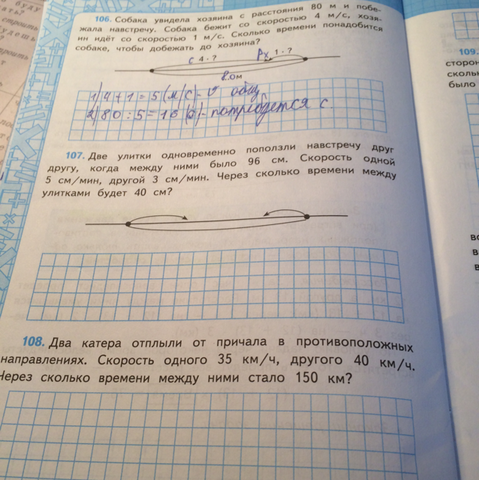 106. Собака увидела хозяина с расстояния 80 м и побе-
жала навстречу. Собака бежит со скоростью 4 м/с, хозя-
ин идёт со скоростью 1 м/с. Сколько времени понадобится
собаке, чтобы добежать до хозяина?
С 4 - ? 1 - ?
80м
1) 4+1=5 (м/с) - v общ
2) 80:5=16 (с) - потребуется с.
107. Две улитки одновременно поползли навстречу друг
другу, когда между ними было 96 см. Скорость одной
5 см/мин, другой 3 см/мин. Через сколько времени между
улитками будет 40 см?
108. Два катера отплыли от причала в противоположных
направлениях. Скорость одного 35 км/ч, другого 40 км/ч.
Через сколько времени между ними стало 150 км?
109.
сторон
скольк
было